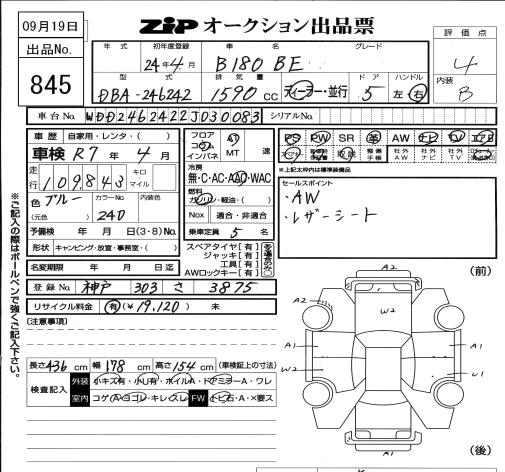 09月19日
出品No.
845
ZIP オークション出品票
評価点
4
内装
B
年式 初年度登録 車名 グレード
24年4月 B180 BE
型式 排気量 ドア ハンドル
DBA-246242 1590 CC ディーラー・並行 5 左・右
車台No. WDD2462422J030083 シリアルNo.
車歴 自家用・レンタ・( )
フロア コラム インパネ AT MT 速
PS PW SR 革 AW ナビ TV エアB
車検 R7年4月
冷房
無・C・AC・AAC・WAC
社外AW 社外ナビ 社外TV
走行 109,843 キロ マイル
※上記太枠内は標準装備品
燃料
ガソリン・軽油・( )
セールスポイント
・AW
・レザーシート
色 ブルー カラーNo. 240 内装色
(元色)
Nox 適合・非適合
予備検 年 月 日(3・8)No.
乗車定員 5 名
形状 キャンピング・放宣・事務室・( )
スペアタイヤ[有]
ジャッキ[有]
工具[有]
AWロックキー[有]
名変期限 年 月 日迄
登録No. 神戸 303 さ 3875
リサイクル料金 有(¥19,120) 未
(注意事項)
長さ436cm 幅178cm 高さ154cm (車検証上の寸法)
検査記入
外装 小キズ有・小凹有・ホイルA・ドアミラーA・ワレ
室内 コゲA・ヨゴレ・キレ・スレ FW トビ石・A・X要ス
※ご記入の際はボールペンで強くご記入下さい。
(前)
A2
W2
A2
A1
A1
W2
U1
A1
(後)